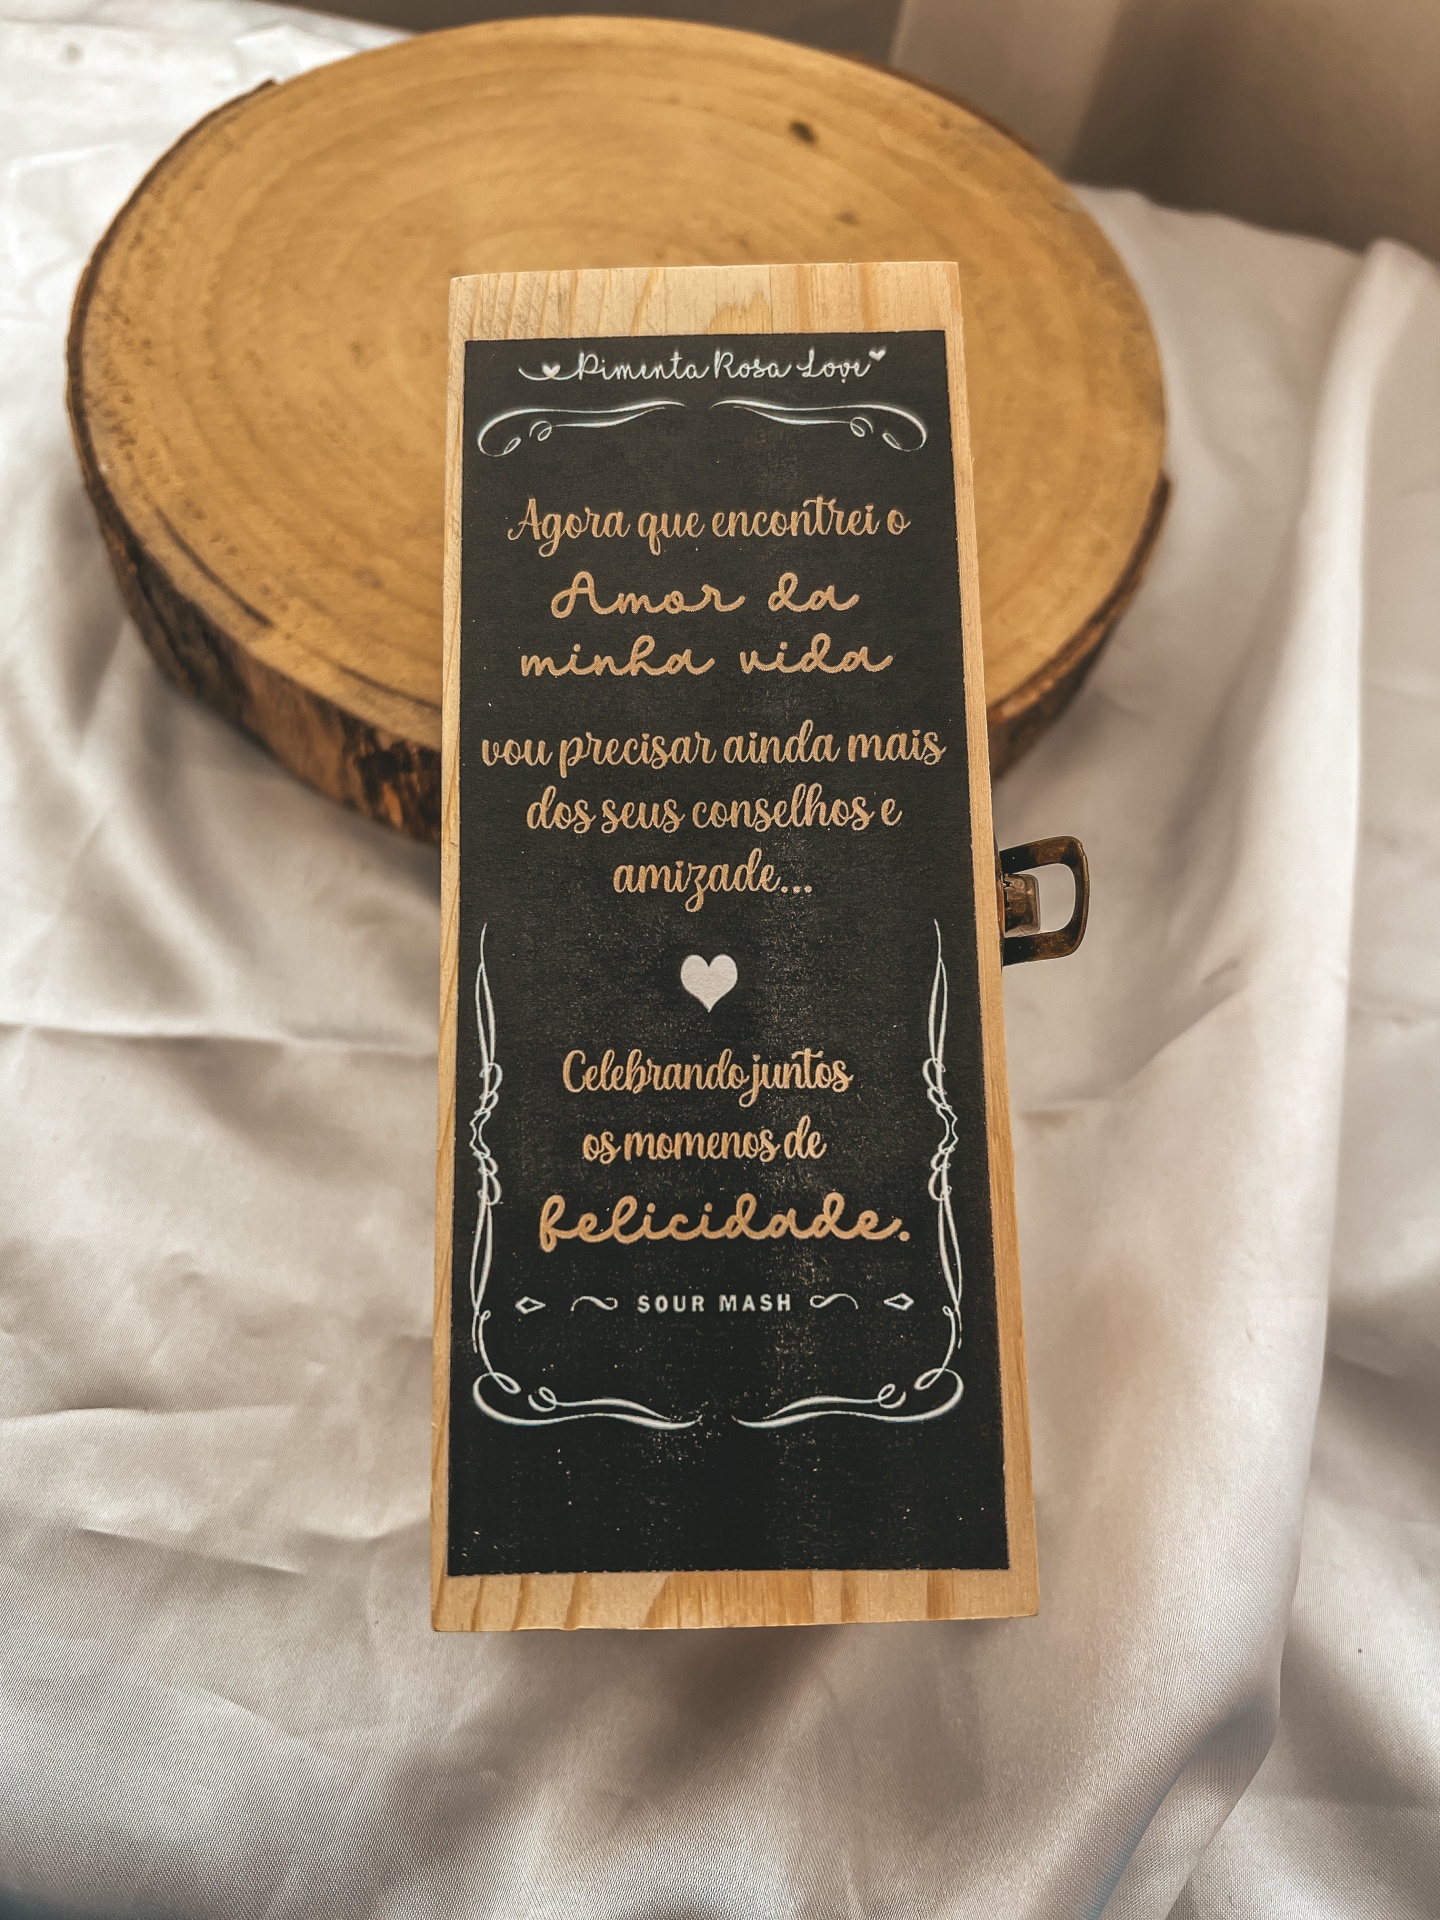 Pimenta Rosa Love
Agora que encontrei o
Amor da
minha vida
vou precisar ainda mais
dos seus conselhos e
amizade...
Celebrando juntos
os momenos de
felicidade.
SOUR MASH